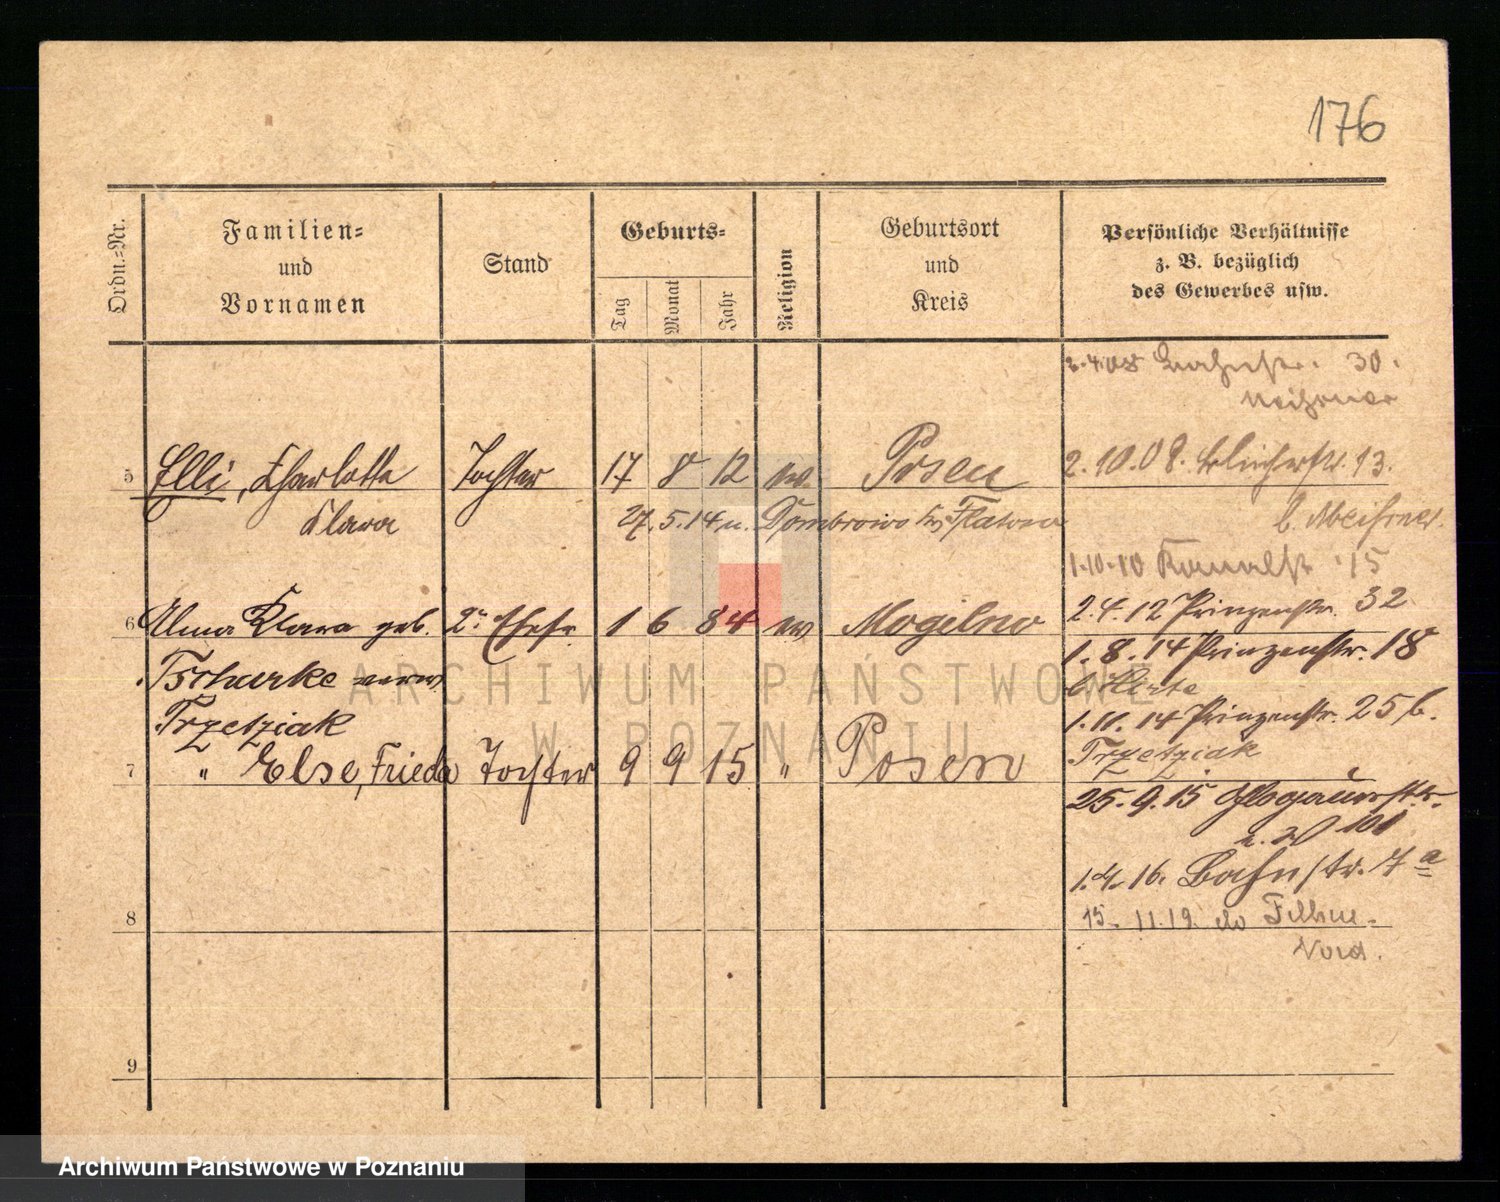 176
Ordn.-Nr.
Familien-
und
Vornamen
Stand
Geburts-
Tag
Monat
Jahr
Religion
Geburtsort
und
Kreis
Persönliche Verhältnisse
z. B. bezüglich
des Gewerbes usw.
2.4.08 Bahnstr. 30.
Meißner
5 Elli, Charlotte Tochter 17 8 12 ev. Posen 2.10.08. Blücherstr. 13.
Klara 27.5.14 n. Dombrowo Kr. Flatow
b. Meißner.
1.10.10 15
6 Alma Klara geb. 2te Ehefr. 1 6 84 ev Mogilno 2.4.12 Prinzenstr. 32
Tschurke verw. 1.8.14 Prinzenstr. 18
Trzetziak 1.11.14 Prinzenstr. 25 b.
Trzetziak
7 " Else, Frieda Tochter 9 9 15 " Posen
25.9.15 Glogauerstr.
101
1.4.16. Bahnstr. 7a
8
15.11.19. Filehne-
Nord.
9
ARCHIWUM PAŃSTWOWE
W POZNANIU
Archiwum Państwowe w Poznaniu